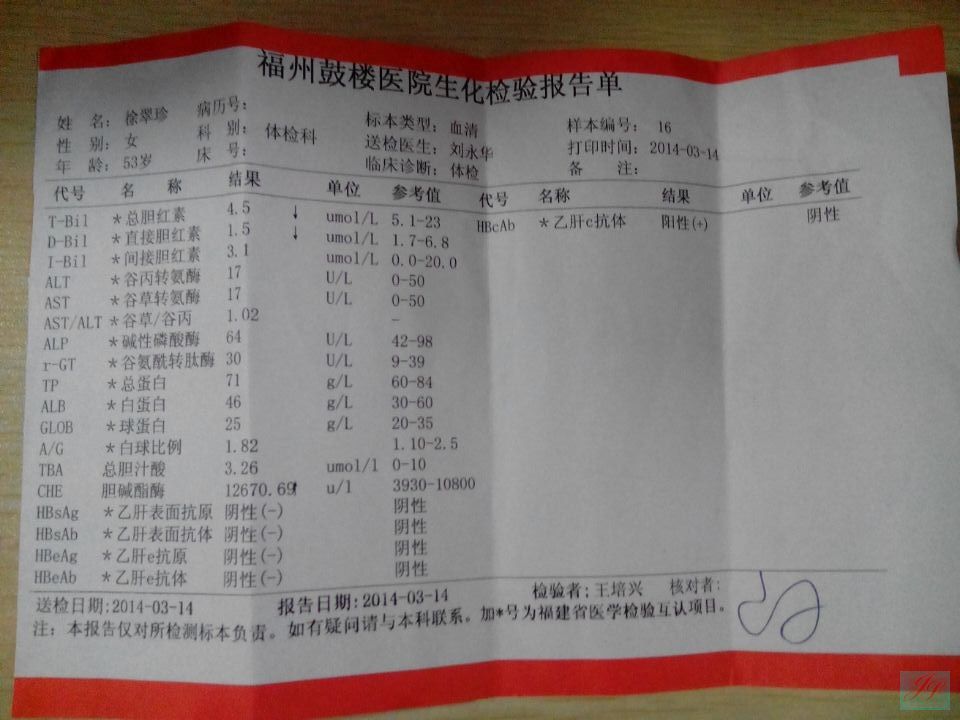 福州鼓楼医院生化检验报告单
姓 名: 徐翠珍 病历号: 标本类型: 血清 样本编号: 16
性 别: 女 科 别: 体检科 送检医生: 刘永华 打印时间: 2014-03-14
年 龄: 53岁 床 号: 临床诊断: 体检 备 注:
代号 名 称 结果 单位 参考值 代号 名称 结果 单位 参考值
T-Bil *总胆红素 4.5 ↓ umol/L 5.1-23 HBcAb *乙肝c抗体 阳性(+) 阴性
D-Bil *直接胆红素 1.5 ↓ umol/L 1.7-6.8
I-Bil *间接胆红素 3.1 umol/L 0.0-20.0
ALT *谷丙转氨酶 17 U/L 0-50
AST *谷草转氨酶 17 U/L 0-50
AST/ALT *谷草/谷丙 1.02 -
ALP *碱性磷酸酶 64 U/L 42-98
r-GT *谷氨酰转肽酶 30 U/L 9-39
TP *总蛋白 71 g/L 60-84
ALB *白蛋白 46 g/L 30-60
GLOB *球蛋白 25 g/L 20-35
A/G *白球比例 1.82 1.10-2.5
TBA 总胆汁酸 3.26 umol/l 0-10
CHE 胆碱酯酶 12670.69↑ u/l 3930-10800
HBsAg *乙肝表面抗原 阴性(-) 阴性
HBsAb *乙肝表面抗体 阴性(-) 阴性
HBeAg *乙肝e抗原 阴性(-) 阴性
HBeAb *乙肝e抗体 阴性(-) 阴性
送检日期:2014-03-14 报告日期:2014-03-14 检验者:王培兴 核对者:
注: 本报告仅对所检测标本负责。如有疑问请与本科联系。加*号为福建省医学检验互认项目。